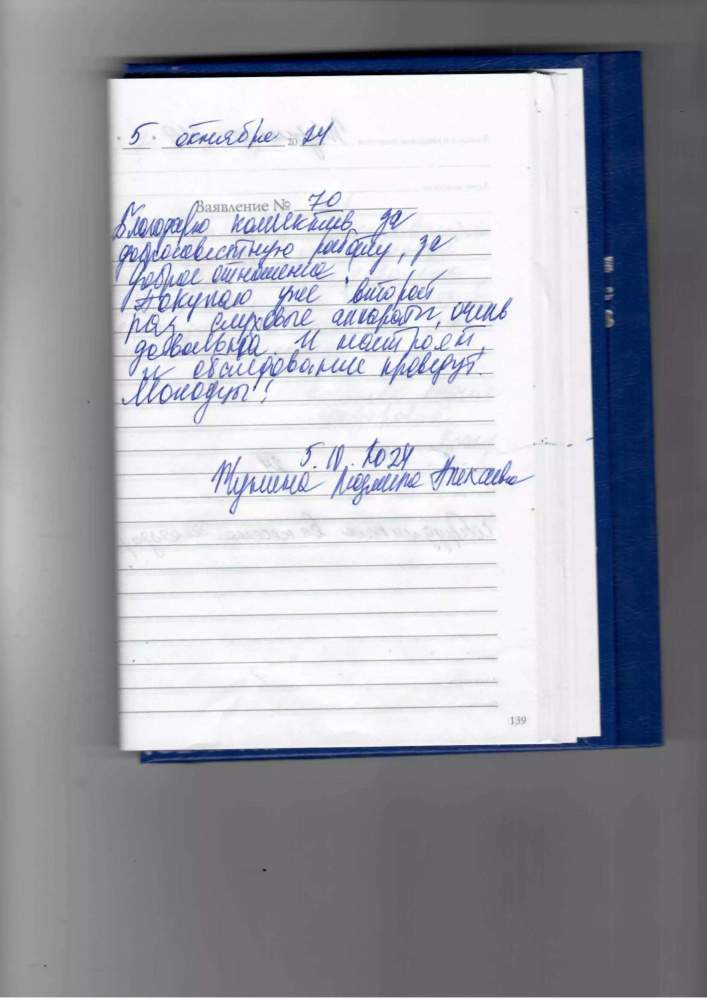 5. октября 20 24
Заявление № 70
Благодарю коллектив за
добросовестную работу, за
доброе отношение
Покупаю уже второй
раз слуховые аппараты, очень
довольна. И настроят,
и обследование проведут.
Молодцы!
5.10.2024
Людмила
139